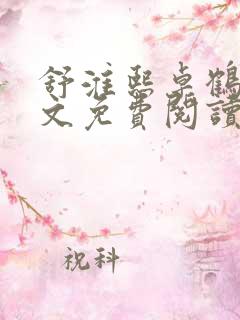 舒淮熙卓鶴
文免費閱讀
祝科